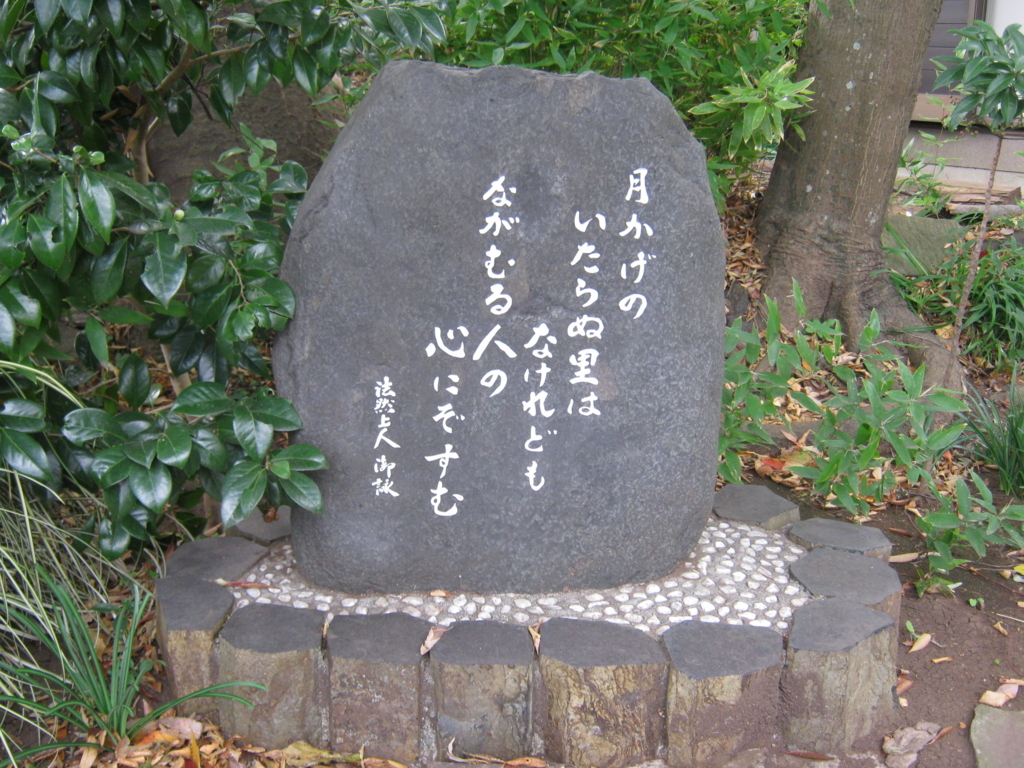 月かげの
いたらぬ里は
なけれども
ながむる人の
心にぞすむ
法然上人御詠